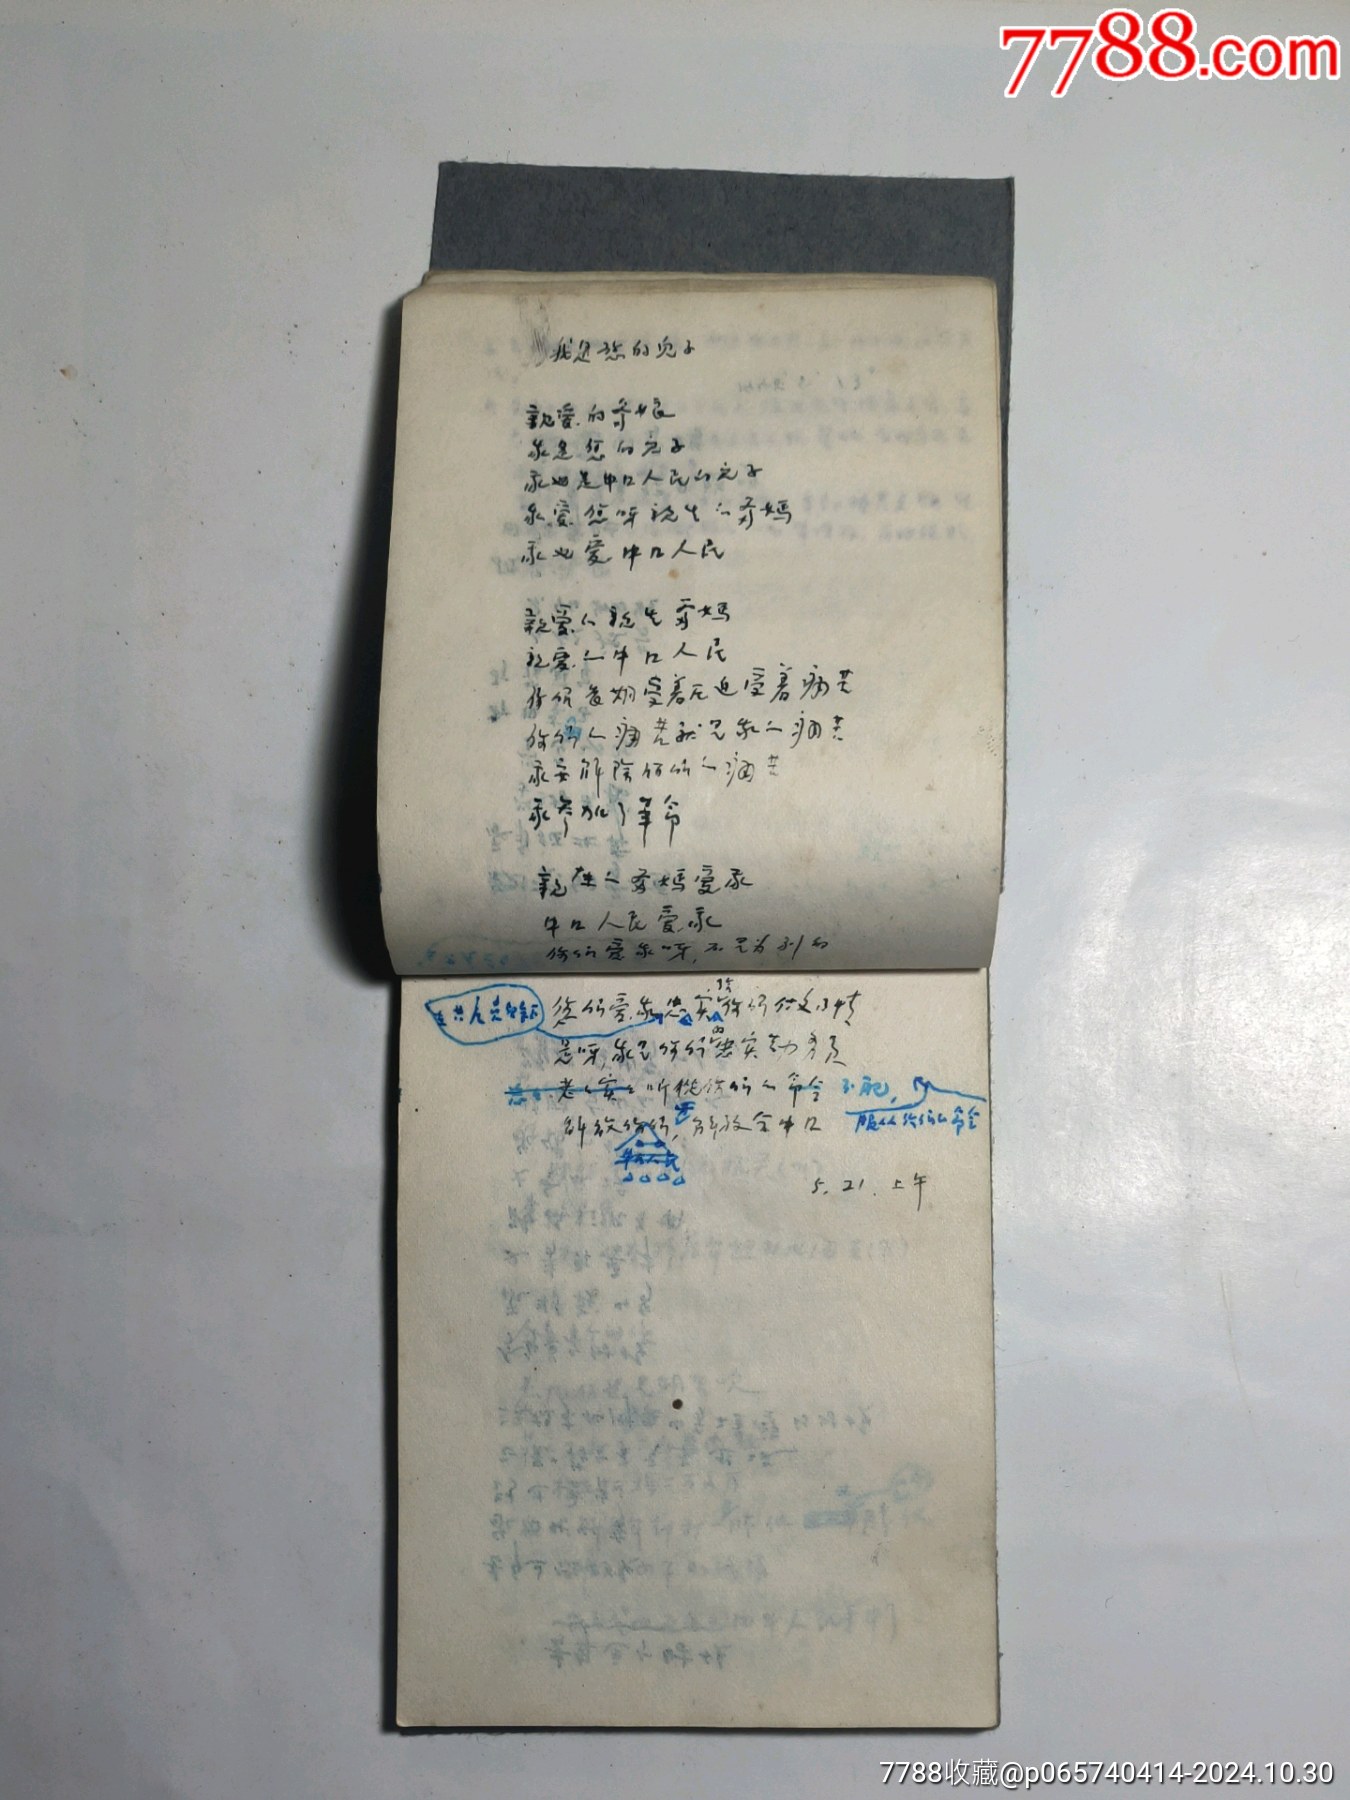 7788.com
我是您的儿子
亲爱的爹娘
我是您的儿子
我也是中口人民的儿子
我爱您呀亲生的爹妈
我也爱中口人民
亲爱的亲生爹妈
亲爱的中口人民
你们长期受着压迫受着痛苦
你们的痛苦就是我的痛苦
我要解除你们的痛苦
我参加了革命
亲生的爹妈爱我
中口人民爱我
你们爱我呀,不是为别的
您们爱我忠实
是呀,我是你们的忠实勤务员
老老实实听从你们的命令
服从你们的命令
解放你们,解放全中口
人民
5.21.上午
7788收藏@p065740414-2024.10.30